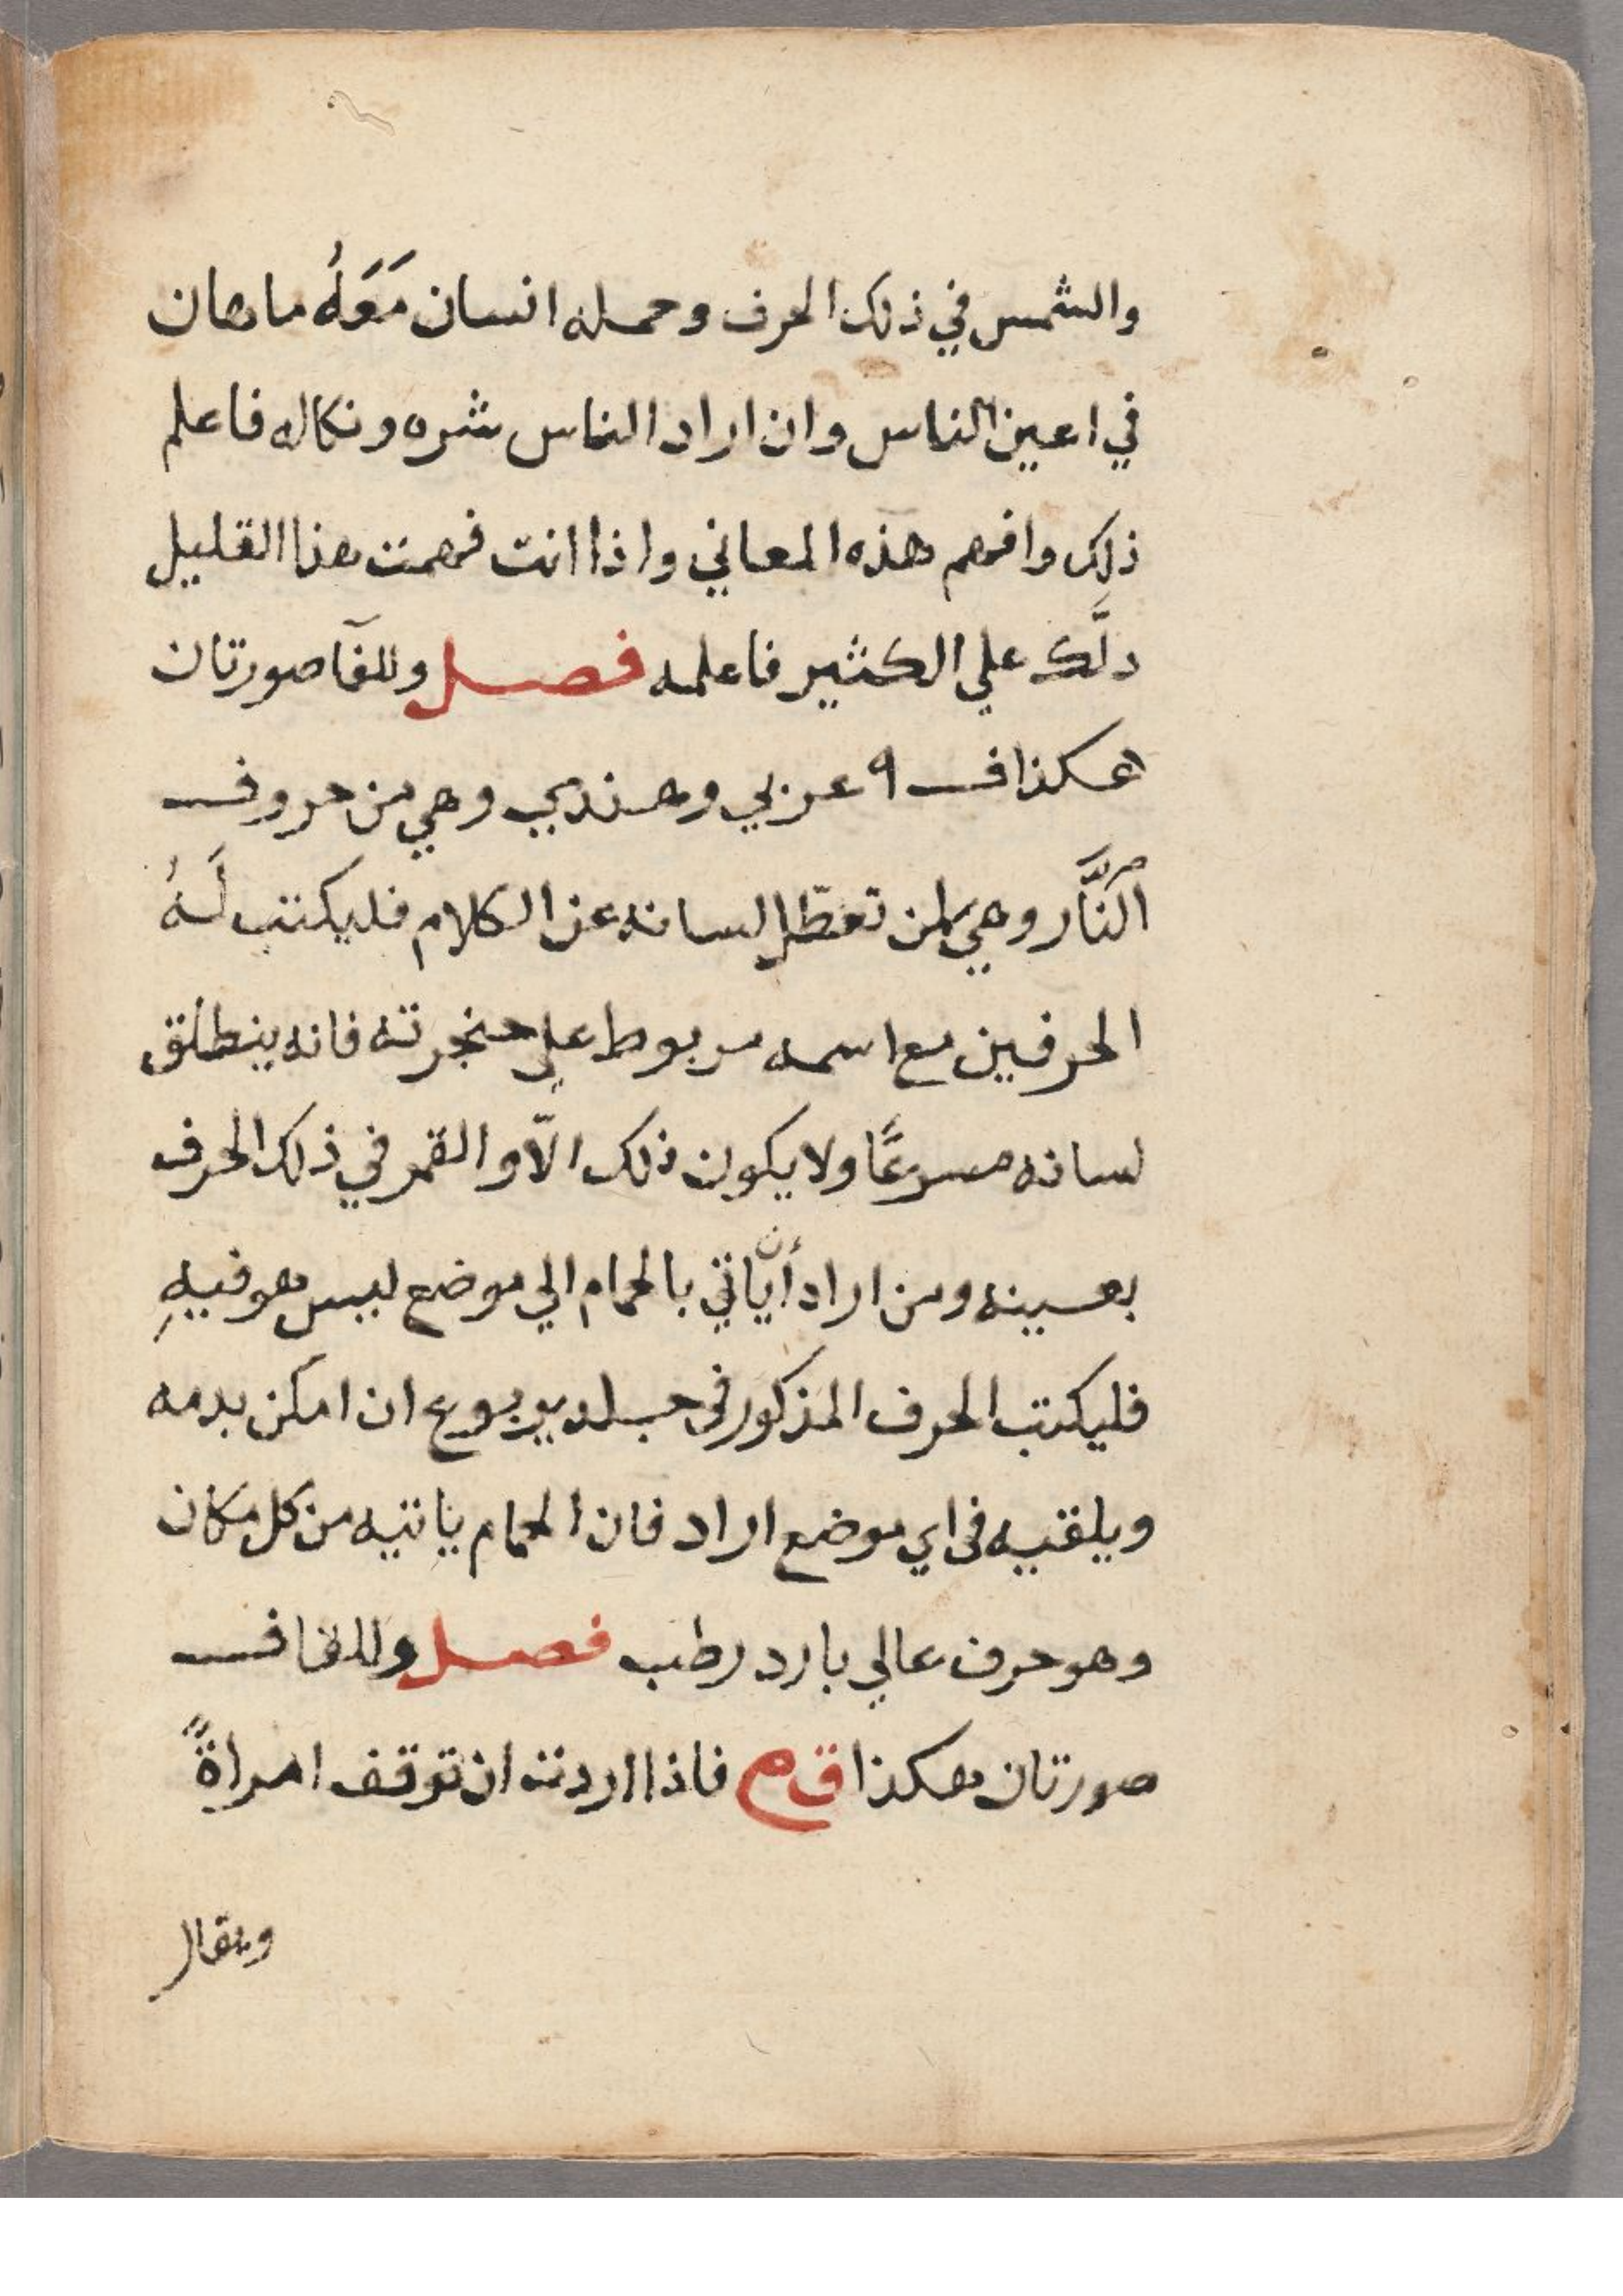 والشمس في ذلك الحرف وحمله انسان مَعَهُ ماهان
في اعين الناس وان اراد الناس شره ونكاله فاعلم
ذلك وافهم هذه المعاني واذا انت فهمت هذا القليل
دلَّك علي الكثير فاعلمه فصل وللفآ صورتان
هكذا ف ٩ عربي وهندي وهي من حروف
النَّار وهي لمن تعطّل لسانه عن الكلام فليكتب لَهُ
الحرفين مع اسمه مربوط علي حنجرته فانه ينطلق
لسانه مسرعًا ولا يكون ذلك الّا والقمر في ذلك الحرف
بعينه ومن اراد أن ياتي بالحمام الي موضع ليس هو فيهِ
فليكتب الحرف المذكور فى جلد يربوع ان امكن بدمه
ويلقيه فى اي موضع اراد فان الحمام ياتيه من كل مكان
وهو حرف عالي بارد رطب فصل وللقاف
صورتان هكذا ق م فاذا اردت ان توقف امراةً
ويقال